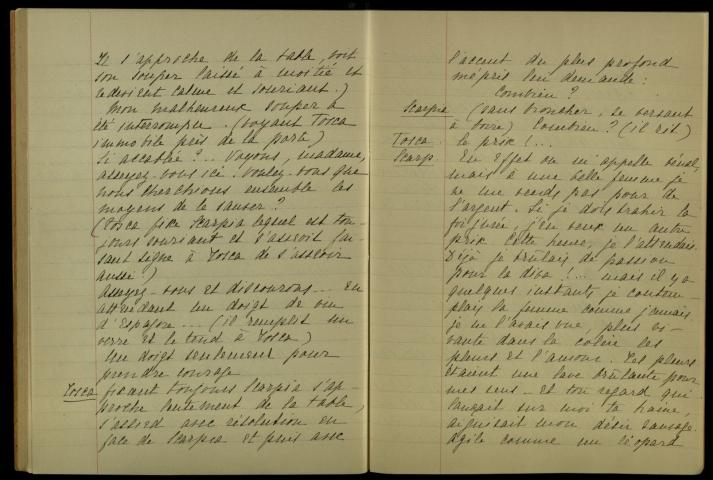 Il s'approche de la table, voit
son souper laissé à moitié et
redevient calme et souriant.)
Mon malheureux souper a
été interrompu. (voyant Tosca
immobile près de la porte)
Si accablé?.. Voyons, madame,
asseyez-vous ici. Voulez-vous que
nous cherchions ensemble les
moyens de le sauver?
(Tosca fixe Scarpia lequel est tou-
jours souriant et s'asseoit fai-
sant signe à Tosca de s'asseoir
aussi.)
Asseyez-vous et discourons... En
attendant un doigt de vin
d'Espagne... (il remplit un
verre et le tend à Tosca)
Un doigt seulement pour
prendre courage
Tosca fixant toujours Scarpia s'ap-
proche lentement de la table,
s'assied avec résolution en
face de Scarpia et puis avec
l'accent du plus profond
mépris lui demande:
Combien?
Scarpia (sans broncher, se versant
à boire) Combien? (il rit)
Tosca le prix!...
Scarp. En effet on m'appelle vénal,
mais à une belle femme je
ne me vends pas pour de
l'argent. Si je dois trahir la
foi jurée, j'en veux un autre
prix. Cette heure, je l'attendais.
Déjà je brûlais de passion
pour la diva!... mais il y a
quelques instants, je contem-
plais la femme comme jamais
je ne l'avais vue, plus vi-
vante dans la colère les
pleurs et l'amour. Tes pleurs
étaient une lave brûlante pour
mes sens - et ton regard qui
lançait sur moi ta haine,
aiguisait mon désir sauvage.
Agile comme un léopard